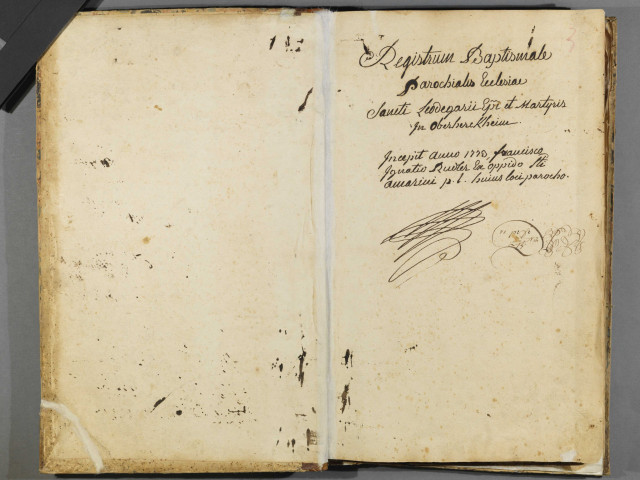 Registrum Baptismale
Parochialis Ecclesiae
Sancti Leodegarii Epi et Martyris
In Oberherckheim
Incepit anno 1770, francisco
Ignatio Ex oppido Sti
amarini p. t. huius loci parocho.
3